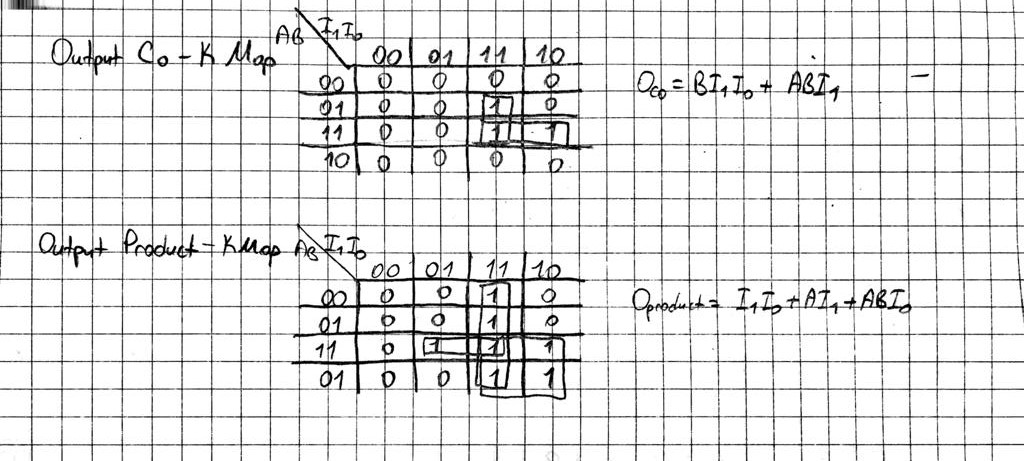 AB I₁I₀
Output C₀ - K Map
00 01 11 10
00 0 0 0 0
01 0 0 1 0
11 0 0 1 1
10 0 0 0 0
O_C₀ = BI₁I₀ + ABI₁ -
Output Product - K Map AB I₁I₀
00 01 11 10
00 0 0 1 0
01 0 0 1 0
11 0 1 1 1
01 0 0 1 1
Oproduct = I₁I₀ + AI₁ + ABI₀